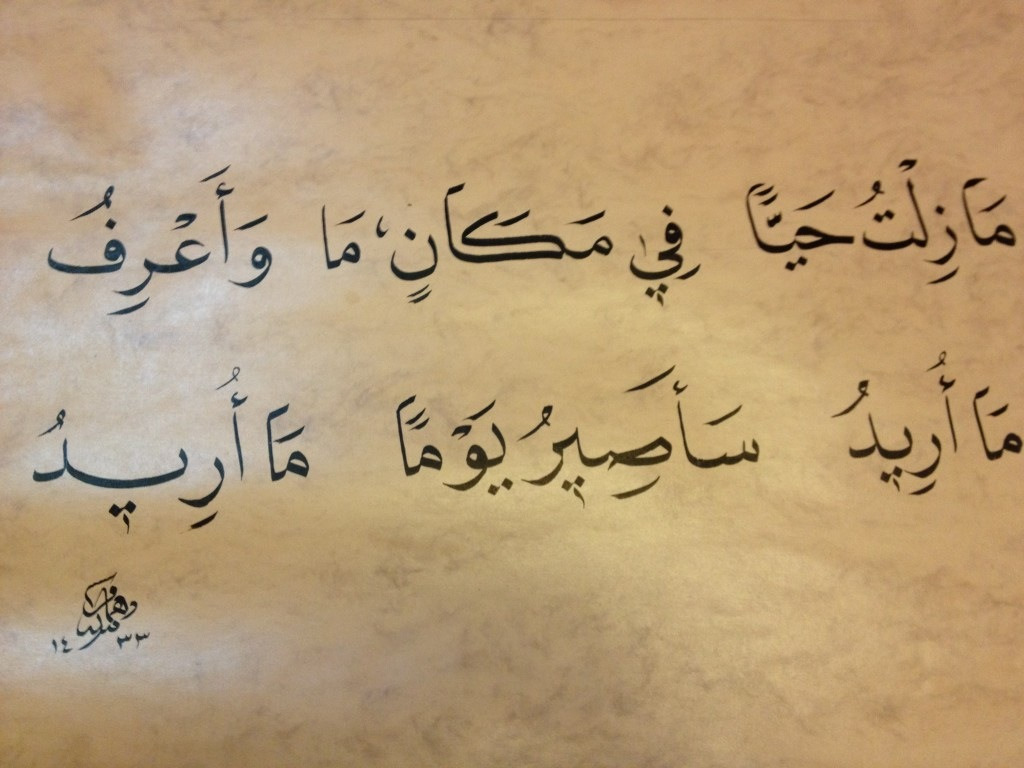 مَا زِلْتُ حَيًّا فِي مَكَانٍ مَا وَأَعْرِفُ
مَا أُرِيدُ سَأَصِيرُ يَوْمًا مَا أُرِيدُ
١٤٣٣